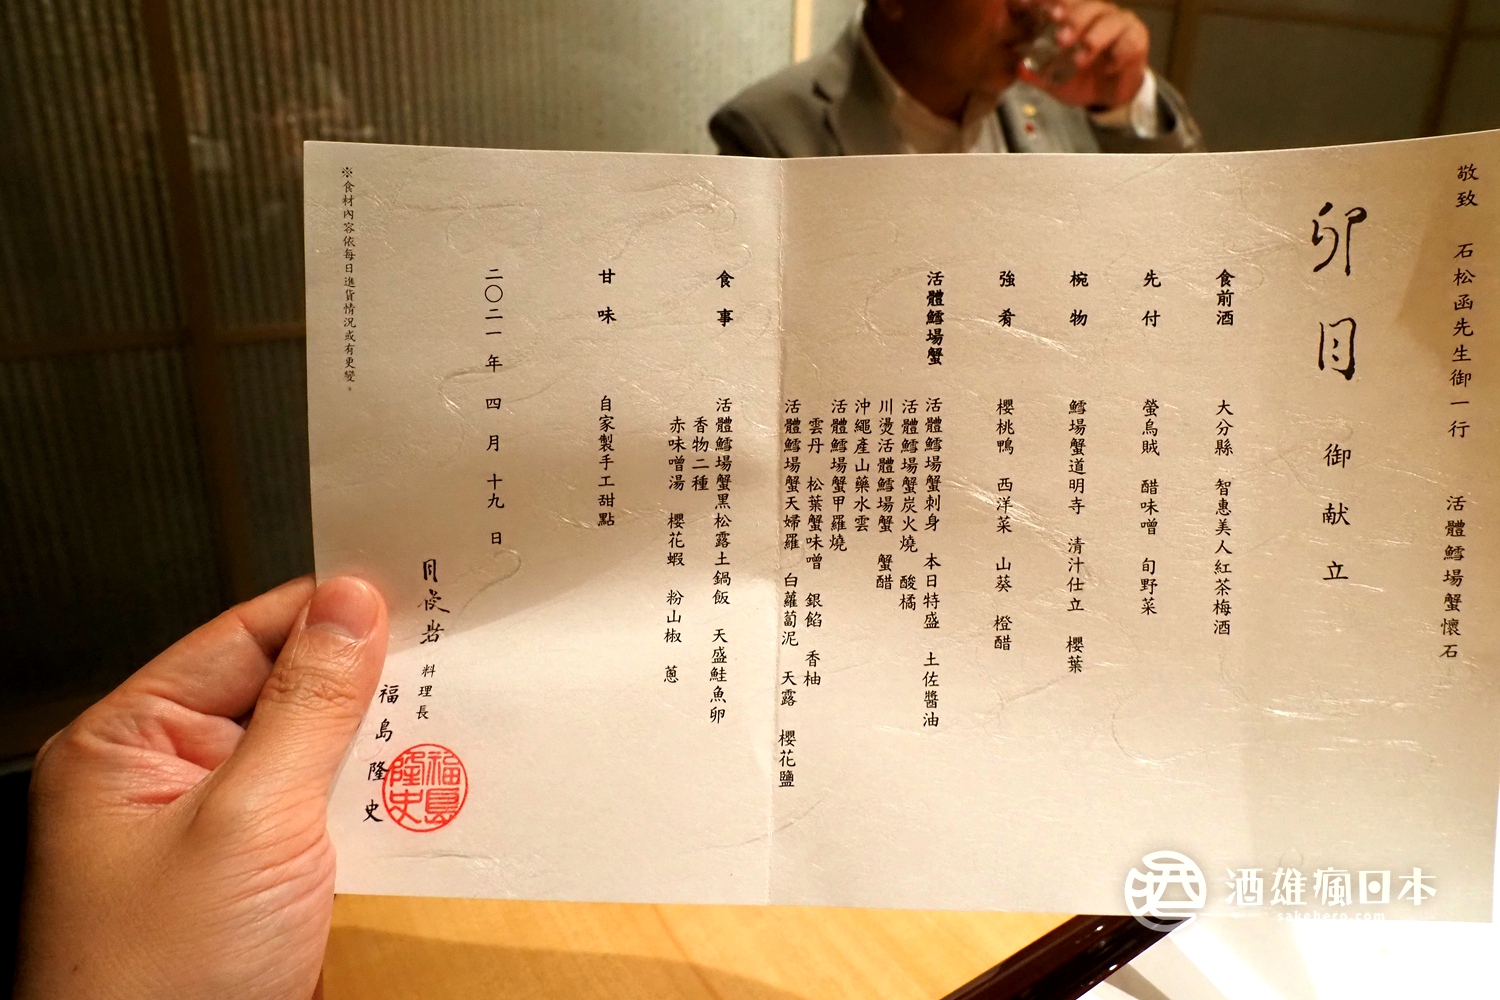 敬致　石松函先生御一行　活體鱈場蟹懷石
卯月　御献立
食前酒　大分縣　智惠美人紅茶梅酒
先付　螢烏賊　醋味噌　旬野菜
椀物　鱈場蟹道明寺　清汁仕立　櫻葉
強肴　櫻桃鴨　西洋菜　山葵　橙醋
活體鱈場蟹　活體鱈場蟹刺身　本日特盛　土佐醬油
活體鱈場蟹炭火燒　酸橘
川燙活體鱈場蟹　蟹醋
沖繩產山藥水雲
活體鱈場蟹甲羅燒
雲丹　松葉蟹味噌　銀餡　香柚
活體鱈場蟹天婦羅　白蘿蔔泥　天露　櫻花鹽
食事　活體鱈場蟹黑松露土鍋飯　天盛鮭魚卵
香物二種
赤味噌湯　櫻花蝦　粉山椒　蔥
甘味　自家製手工甜點
二〇二一年四月十九日
料理長
福島隆史
福島隆史
※食材內容依每日進貨情況或有更變。
酒雄瘋日本
sakehero.com